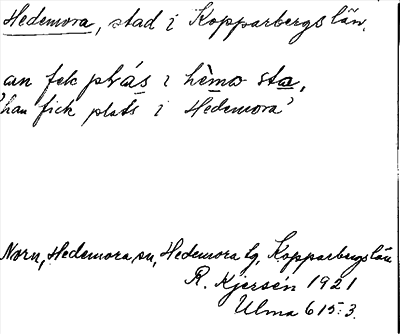 Hedemora, stad i Kopparbergs län.
an fek plvás i hèmo sta,
'han fick plats i Hedemora'
Norn, Hedemora sn, Hedemora tg, Kopparbergs län
R. Kjersén 1921
Ulma 615:3.